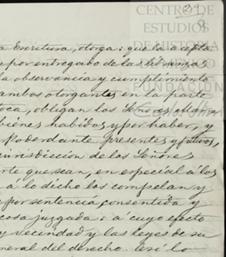 CENTRO DE
ESTUDIOS
DE
FUNDACIÓN
a Escritura, otorga: que la acepta
por entregado de las
la observancia y cumplimiento
ambos otorgantes en la parte
toca, obligan los Señores
bienes habidos y por haber, y
Poderdante presentes y futuros,
jurisdiccion de los Señores
rte que sean, en especial á los
a lo dicho los compelan y
por sentencia consentida y
cosa juzgada: á cuyo efecto
y vecindad y las leyes de su
neral del derecho. Así lo